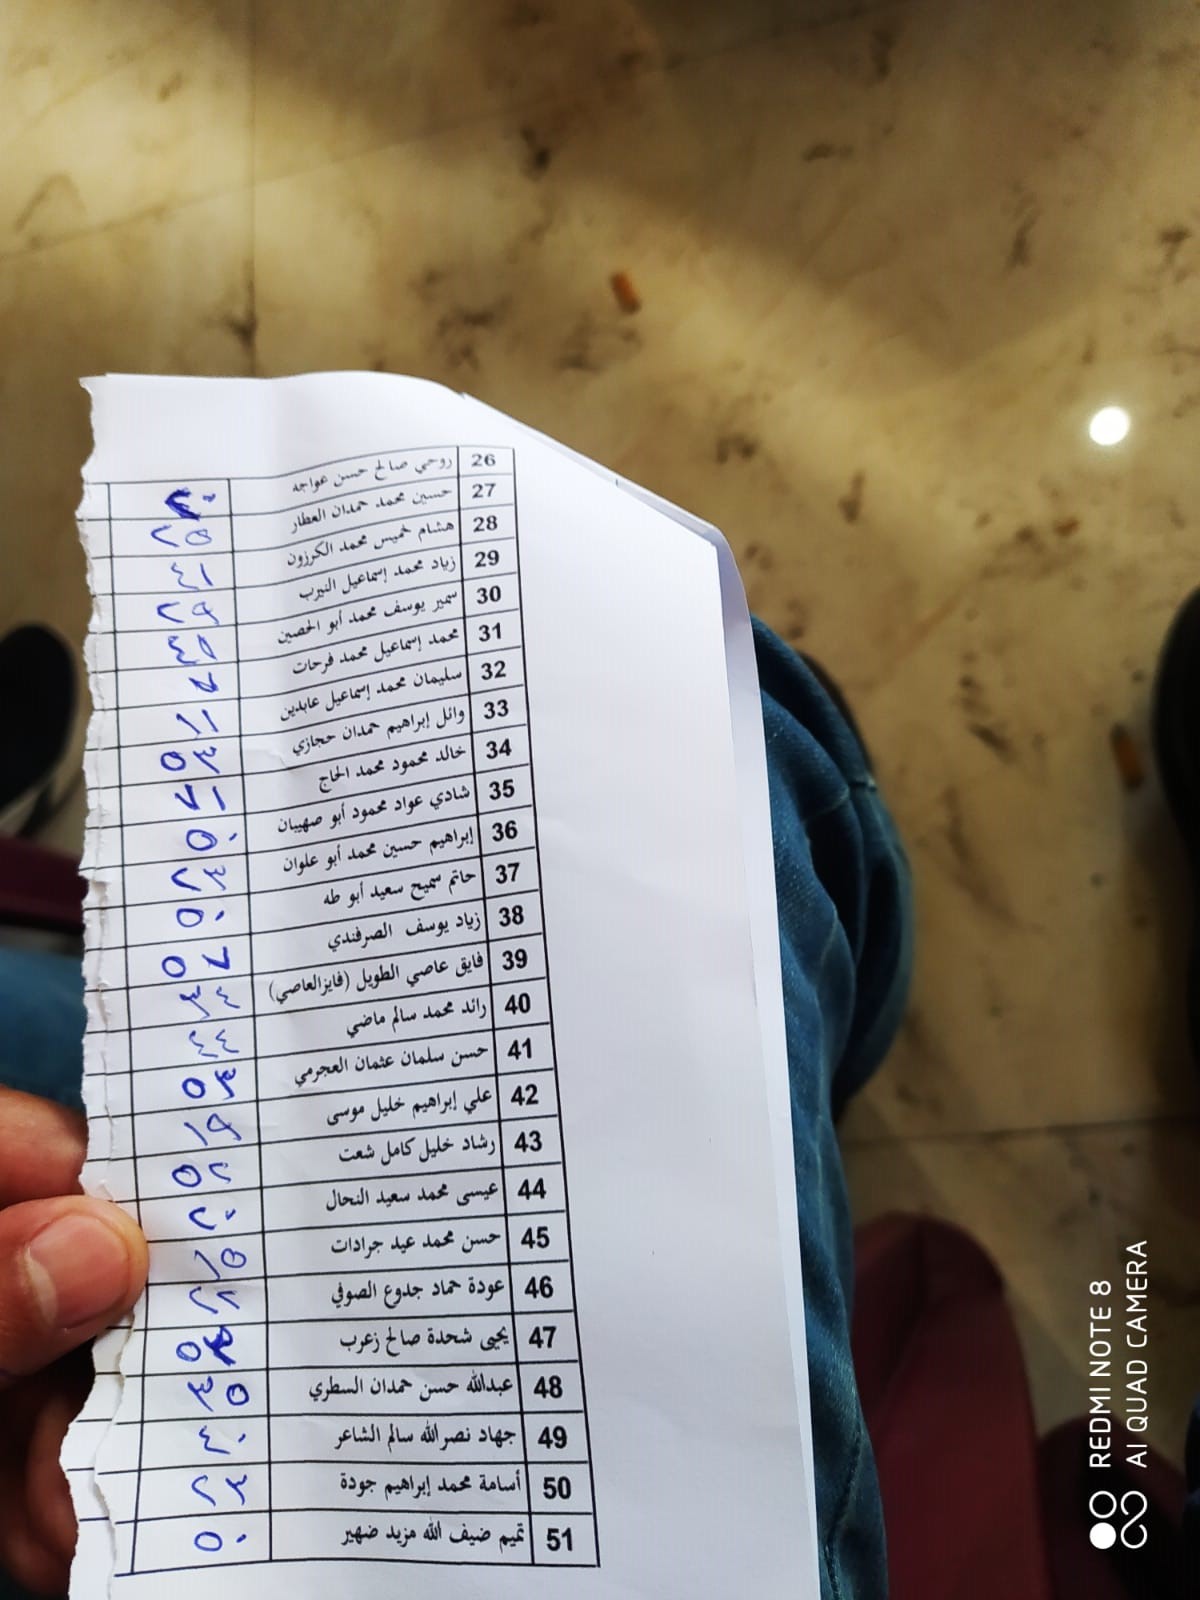 26 روحي صالح حسن عواجه
27 حسين محمد حمدان العطار
28 هشام خميس محمد الكرزون ٢٥
29 زياد محمد إسماعيل النيرب
30 سمير يوسف محمد أبو الحصين ٢٩
31 محمد إسماعيل محمد فرحات
32 سليمان محمد إسماعيل عابدين
33 وائل إبراهيم حمدان حجازي
34 خالد محمود محمد الحاج
35 شادي عواد محمود أبو صهيبان
36 إبراهيم حسين محمد أبو علوان ٥٠
37 حاتم سميح سعيد أبو طه ٢٣
38 زياد يوسف الصرفندي ٥٠
39 فايق عاصي الطويل (فايزالعاصي)
40 رائد محمد سالم ماضي
41 حسن سلمان عثمان العجرمي
42 علي إبراهيم خليل موسى
43 رشاد خليل كامل شعت ١٩
44 عيسى محمد سعيد النحال ٥٢
45 حسن محمد عيد جرادات
46 عودة حماد جدوع الصوفي
47 يحيى شحدة صالح زعرب
48 عبدالله حسن حمدان السطري ٣٥
49 جهاد نصرالله سالم الشاعر ٤٠
50 أسامة محمد إبراهيم جودة ٢٣
51 تميم ضيف الله مزيد ضهير ٥٠
REDMI NOTE 8
AI QUAD CAMERA